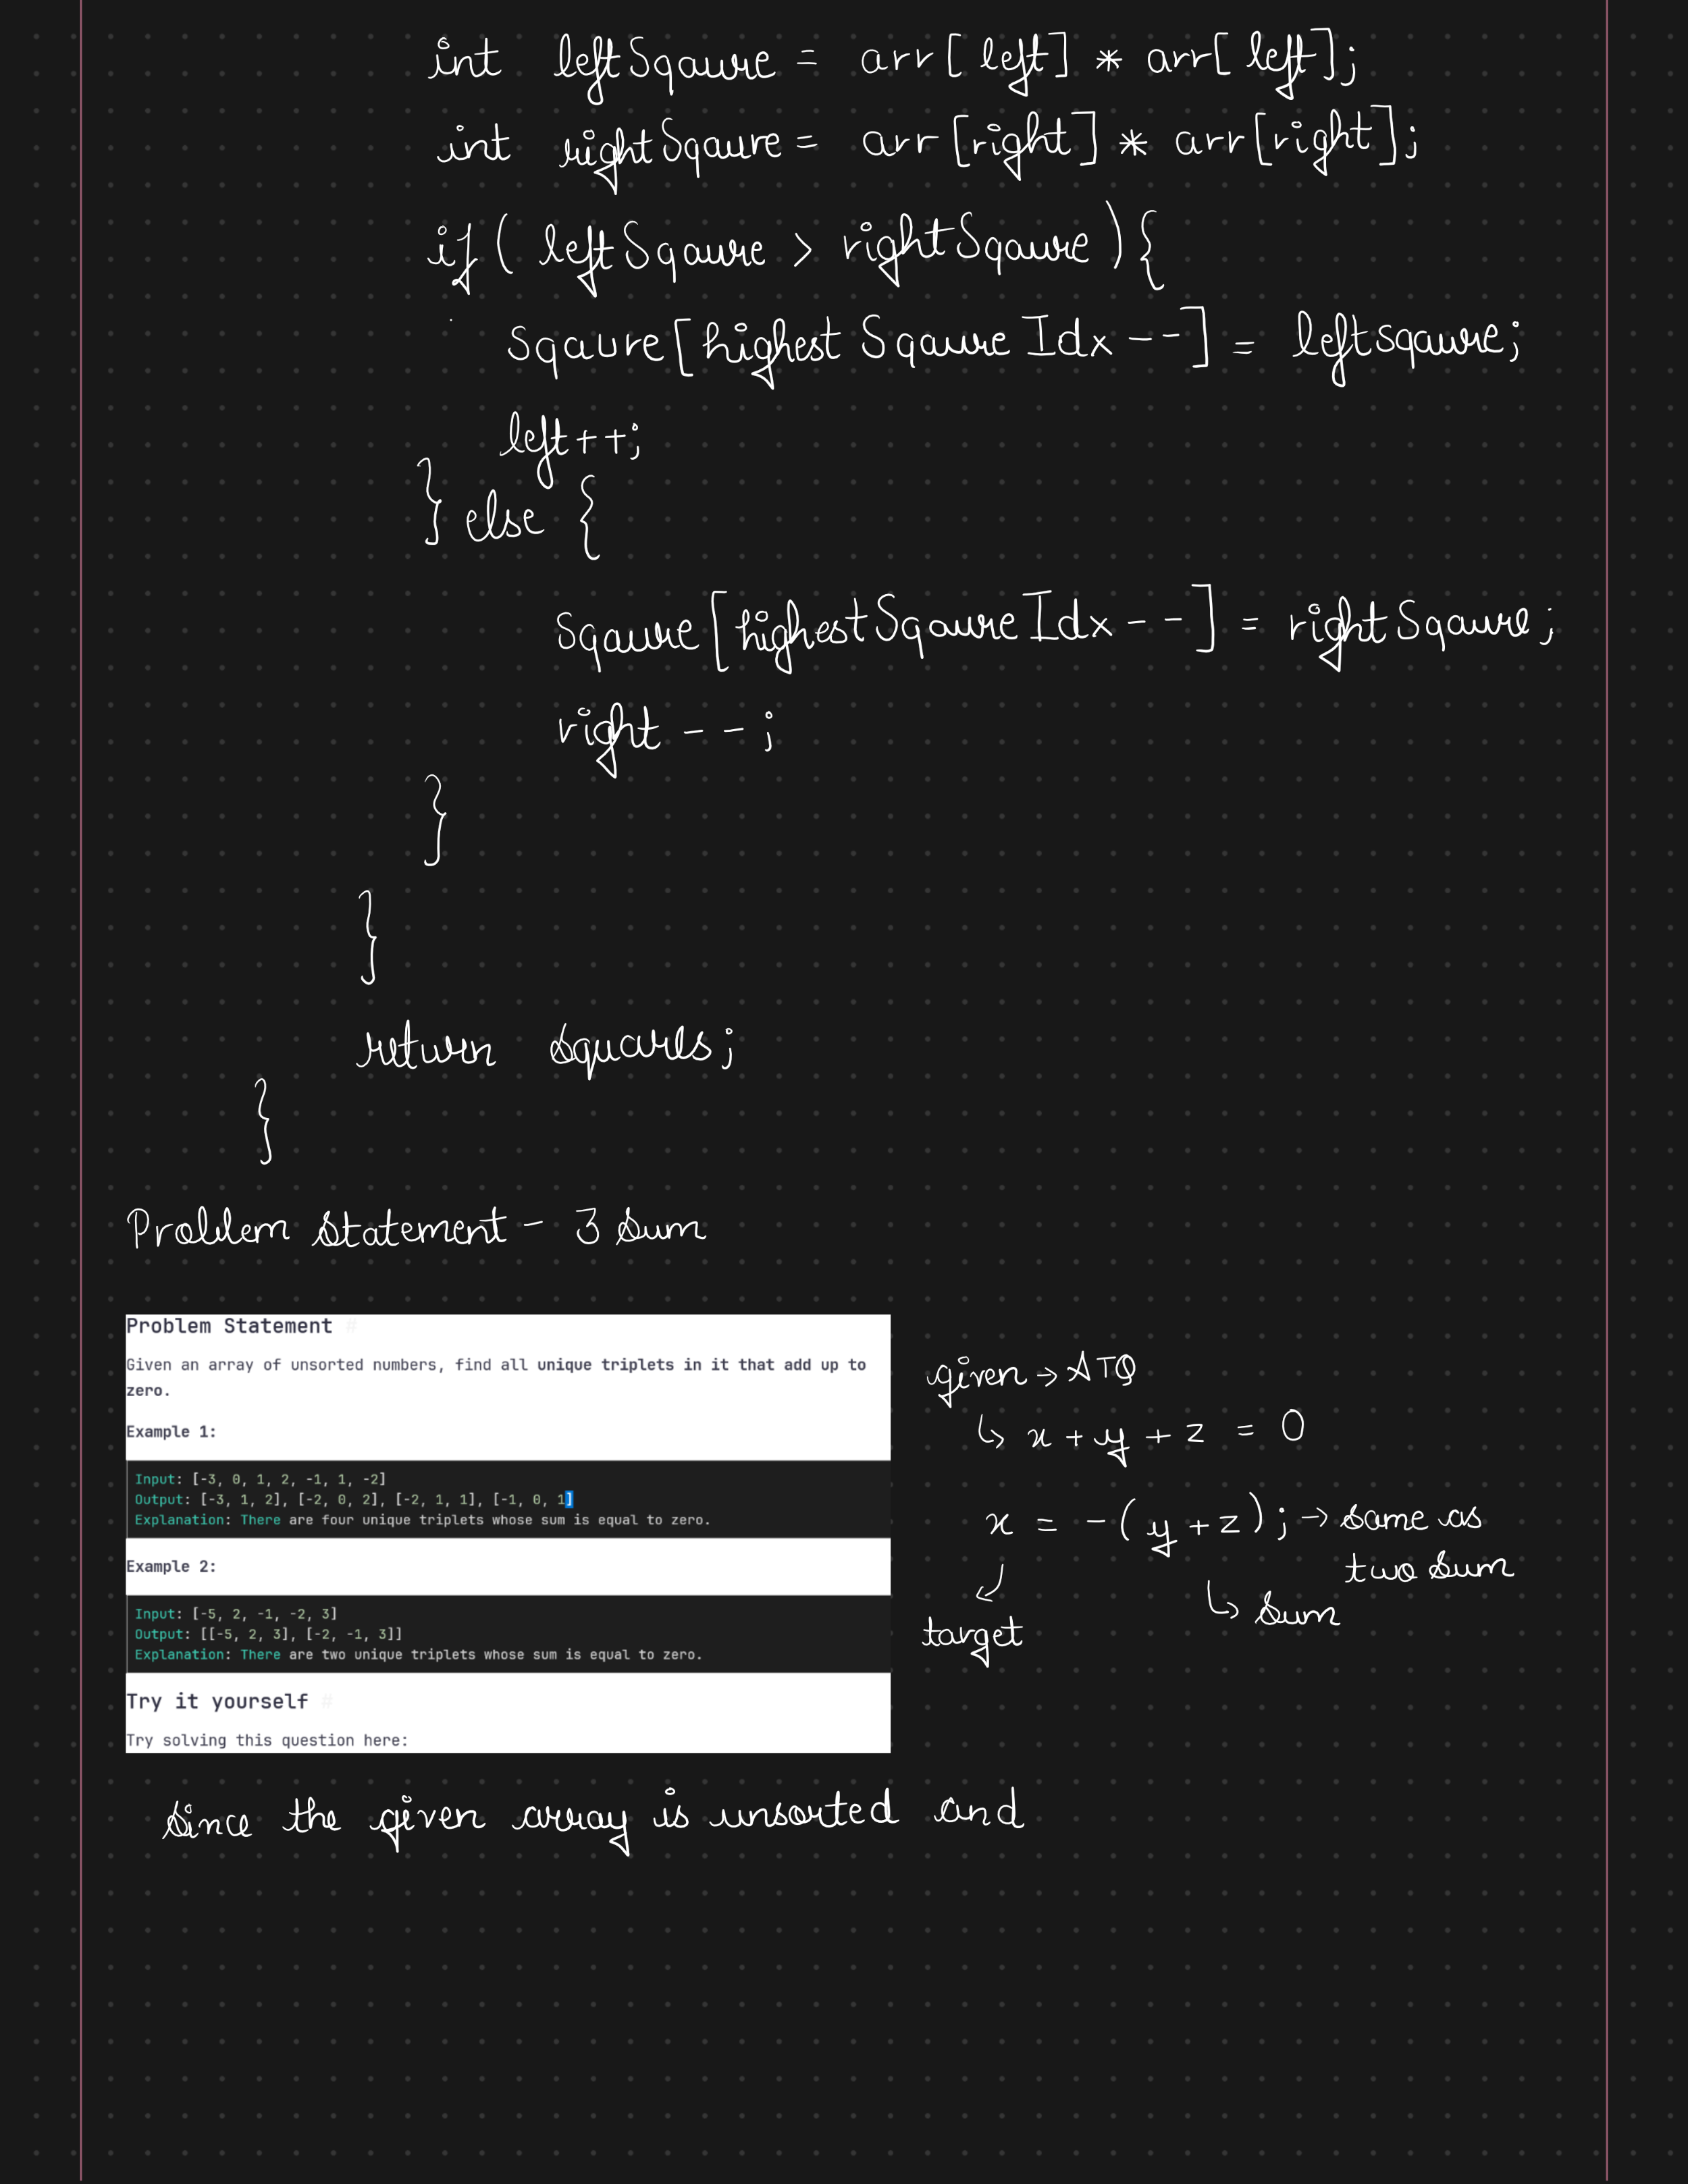 int leftSqaure = arr[left] * arr[left];
int rightSqaure = arr[right] * arr[right];
if( leftSqaure > rightSqaure ){
Sqaure[highest Sqaure Idx --] = leftsqaure;
left++;
} else {
Sqaure[highestSqaure Idx --] = rightSqaure;
right -- ;
}
}
return squares;
}
Problem Statement - 3 Sum
Problem Statement #
Given an array of unsorted numbers, find all unique triplets in it that add up to
zero.
Example 1:
Input: [-3, 0, 1, 2, -1, 1, -2]
Output: [-3, 1, 2], [-2, 0, 2], [-2, 1, 1], [-1, 0, 1]
Explanation: There are four unique triplets whose sum is equal to zero.
Example 2:
Input: [-5, 2, -1, -2, 3]
Output: [[-5, 2, 3], [-2, -1, 3]]
Explanation: There are two unique triplets whose sum is equal to zero.
Try it yourself #
Try solving this question here:
given → ATQ
↳ x + y + z = 0
x = -( y + z ) ; → same as
two sum
↳ sum
target
since the given array is unsorted and